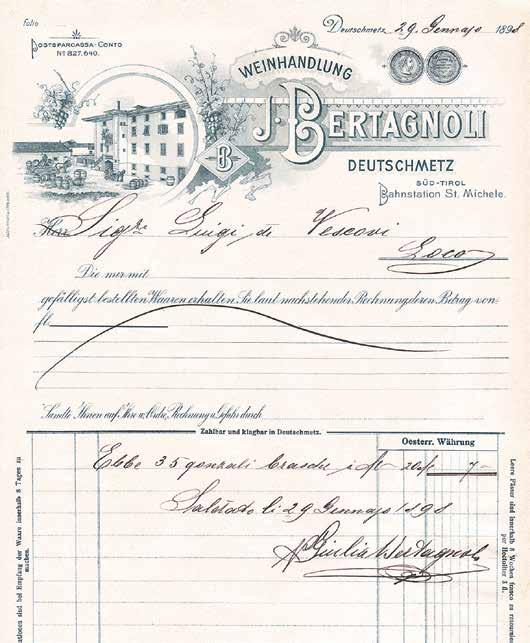 Folio
Deutschmetz, 29. Gennajo 1898
POSTSPARCASSA-CONTO
No 827.640.
WEINHANDLUNG
J. BERTAGNOLLI
B
DEUTSCHMETZ
SÜD-TIROL
Bahnstation St. Michele.
Herr Sigre Luigi de Vescovi
Loco
Die mir mit
gefälligst bestellten Waaren erhalten Sie laut nachstehender Rechnung deren Betrag von
fl.
Sandte Ihnen auf Ihre w. Ordre, Rechnung u. Gefahr durch
Zahlbar und klagbar in Deutschmetz.
Oesterr. Währung
Ebbe 35 gonzali brasche i fl - 20 fl 7 -
Saldado li 29 Gennajo 1898
Giulia Bertagnoli
ationen sind bei Empfang der Waare innerhalb 8 Tagen zu machen.
Leere Fässer sind innerhalb 8 Wochen franco zu retourniren
per Hectoliter 3 fl.